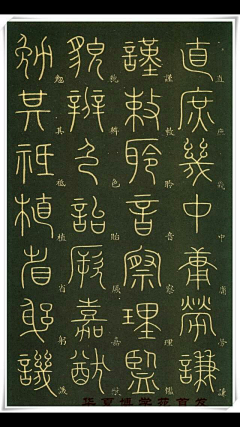 直庶幾中庸勞謙
謹敕聆音察理監
貌辨色詒厥嘉猷
勉其祗植省躬譏